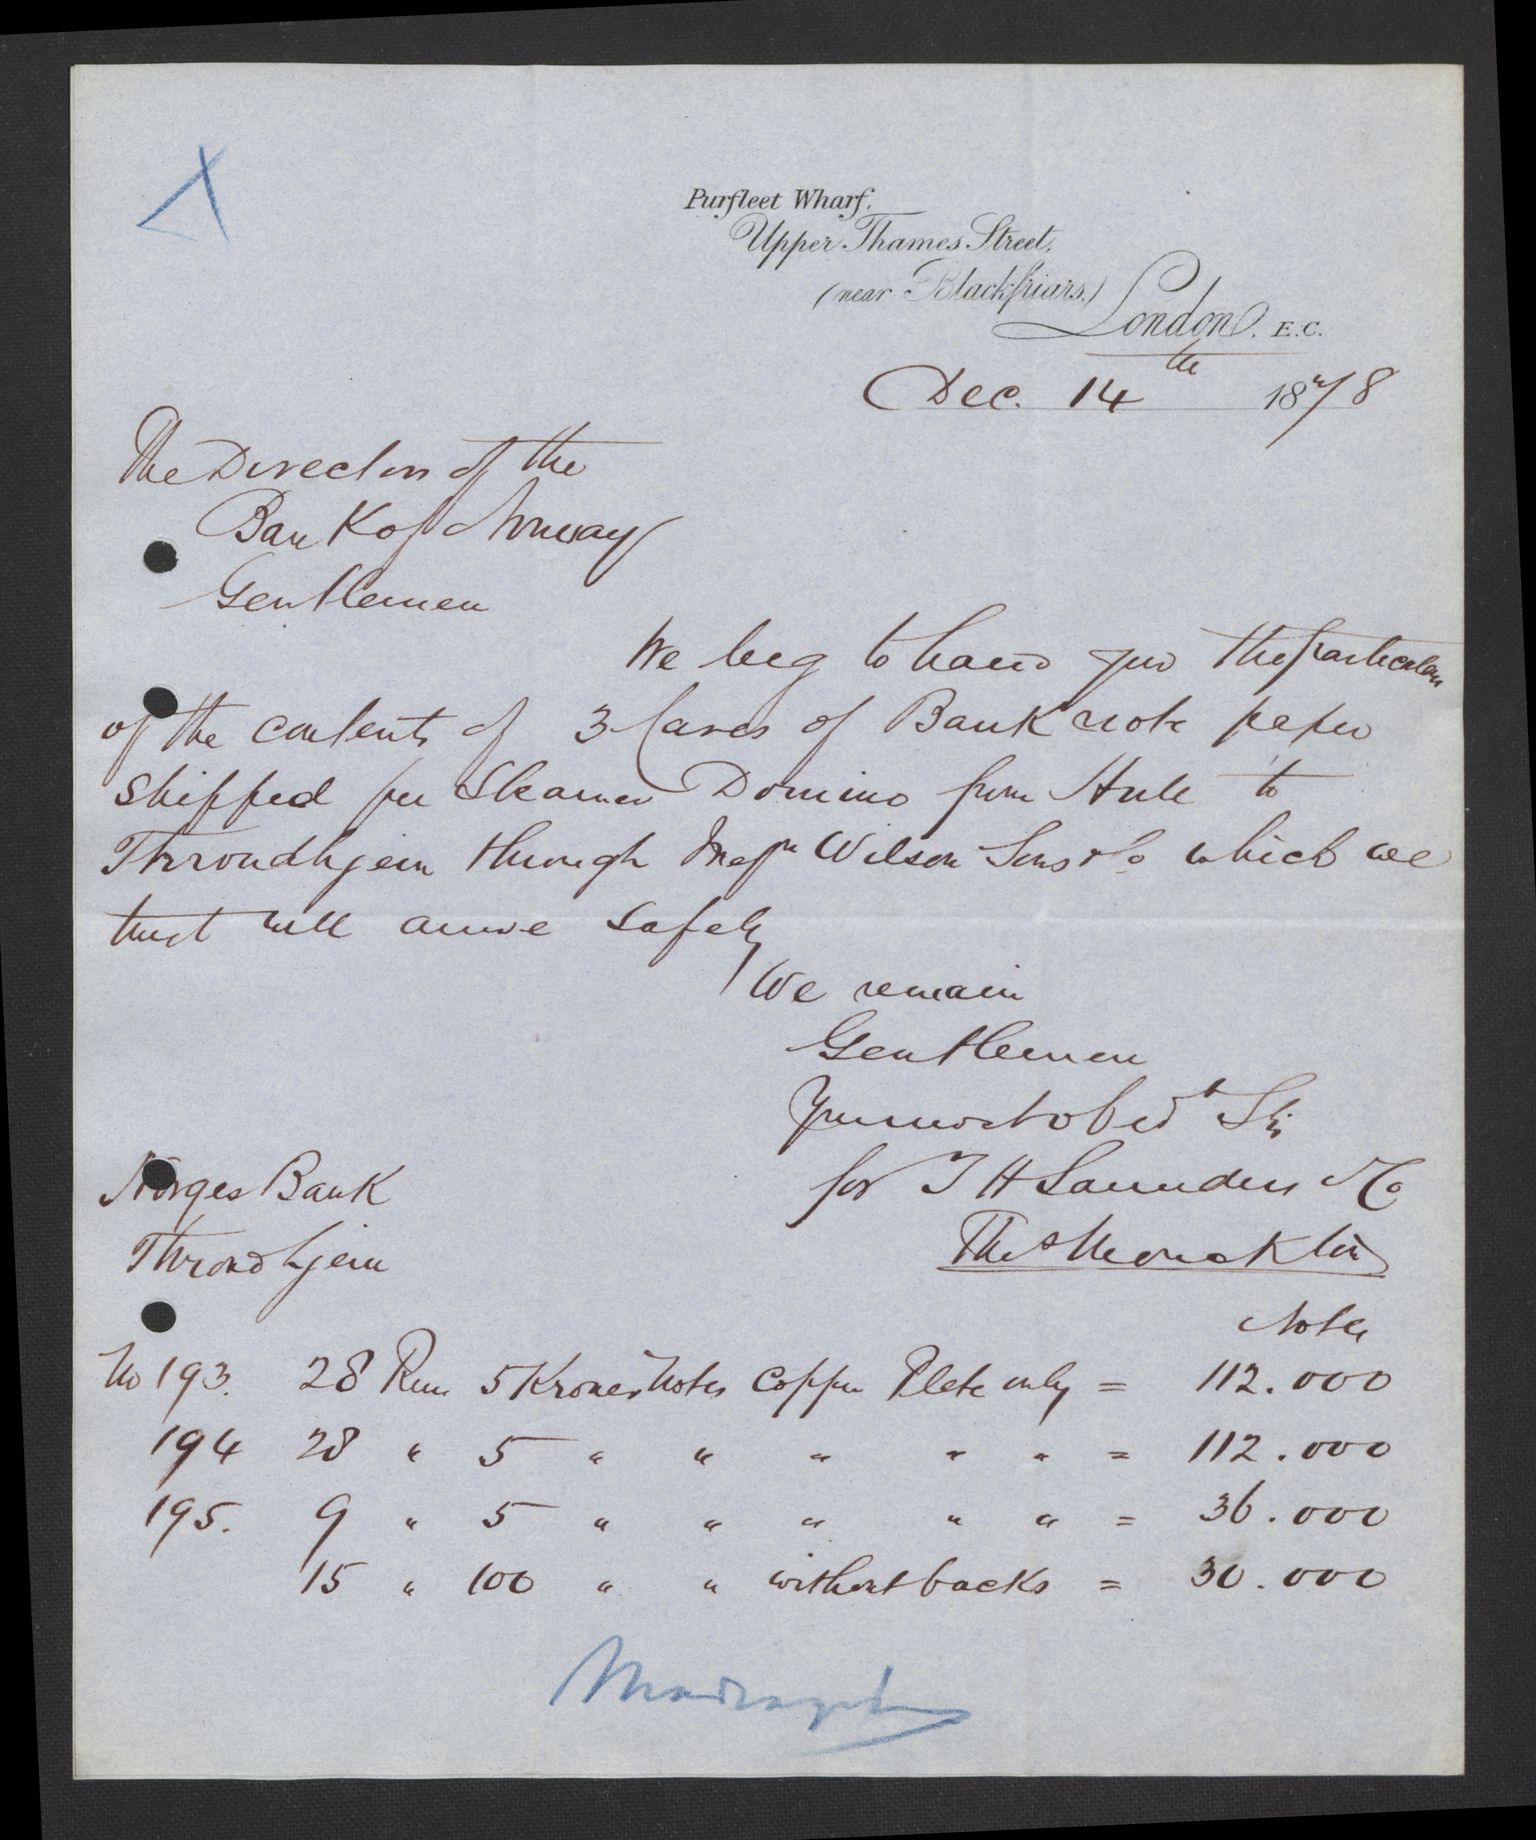 Purfleet Wharf,
Upper Thames Street,
(near Blackfriars.)
London. E.C.
Dec. 14th 1878
The Directors of the
Bank of Norway
Gentlemen
We beg to hand you the particulars
of the contents of 3 Cases of Bank note paper
Shipped per Steamer Domino from Hull to
Throndhjem through Messrs Wilson Sons & Co which we
trust will arrive safely
We remain
Gentlemen
Your most obedt Sts
for T H Saunders & Co
Thos Monckton
Norges Bank
Throndhjem
Notes
No 193. 28 Rms 5 Kroner Notes Copper Plate only = 112.000
194 28 " 5 " " " " " = 112.000
195. 9 " 5 " " " " " = 36.000
15 " 100 " " without backs = 30.000